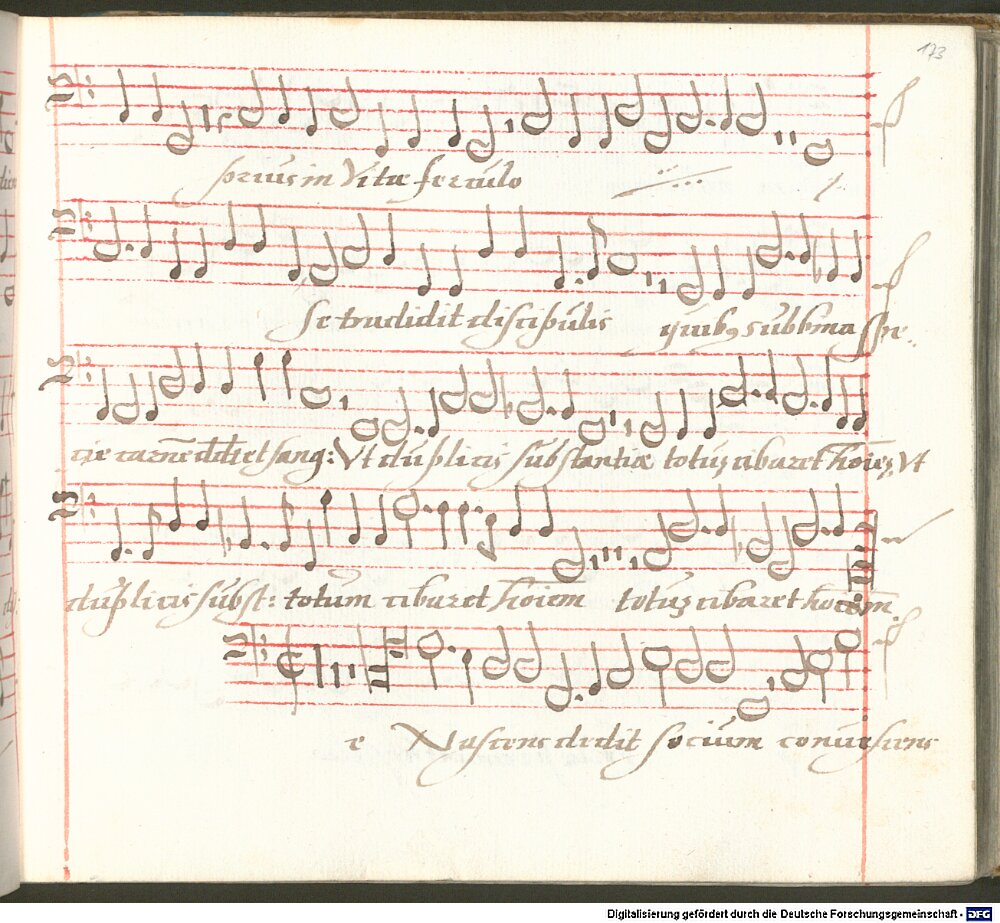 173
sorius in Vitæ ferculo
Se tradidit discipulis quibꝫ sub bina spe-
cie carnē ddit et sang: Vt duplicis substantiæ totuꝫ cibaret hoiēꝫ Vt
duplicis subst: totum cibaret hoiem totuꝫ cibaret hoiem
e Nascens dedit socium conuescens
Digitalisierung gefördert durch die Deutsche Forschungsgemeinschaft - DFG